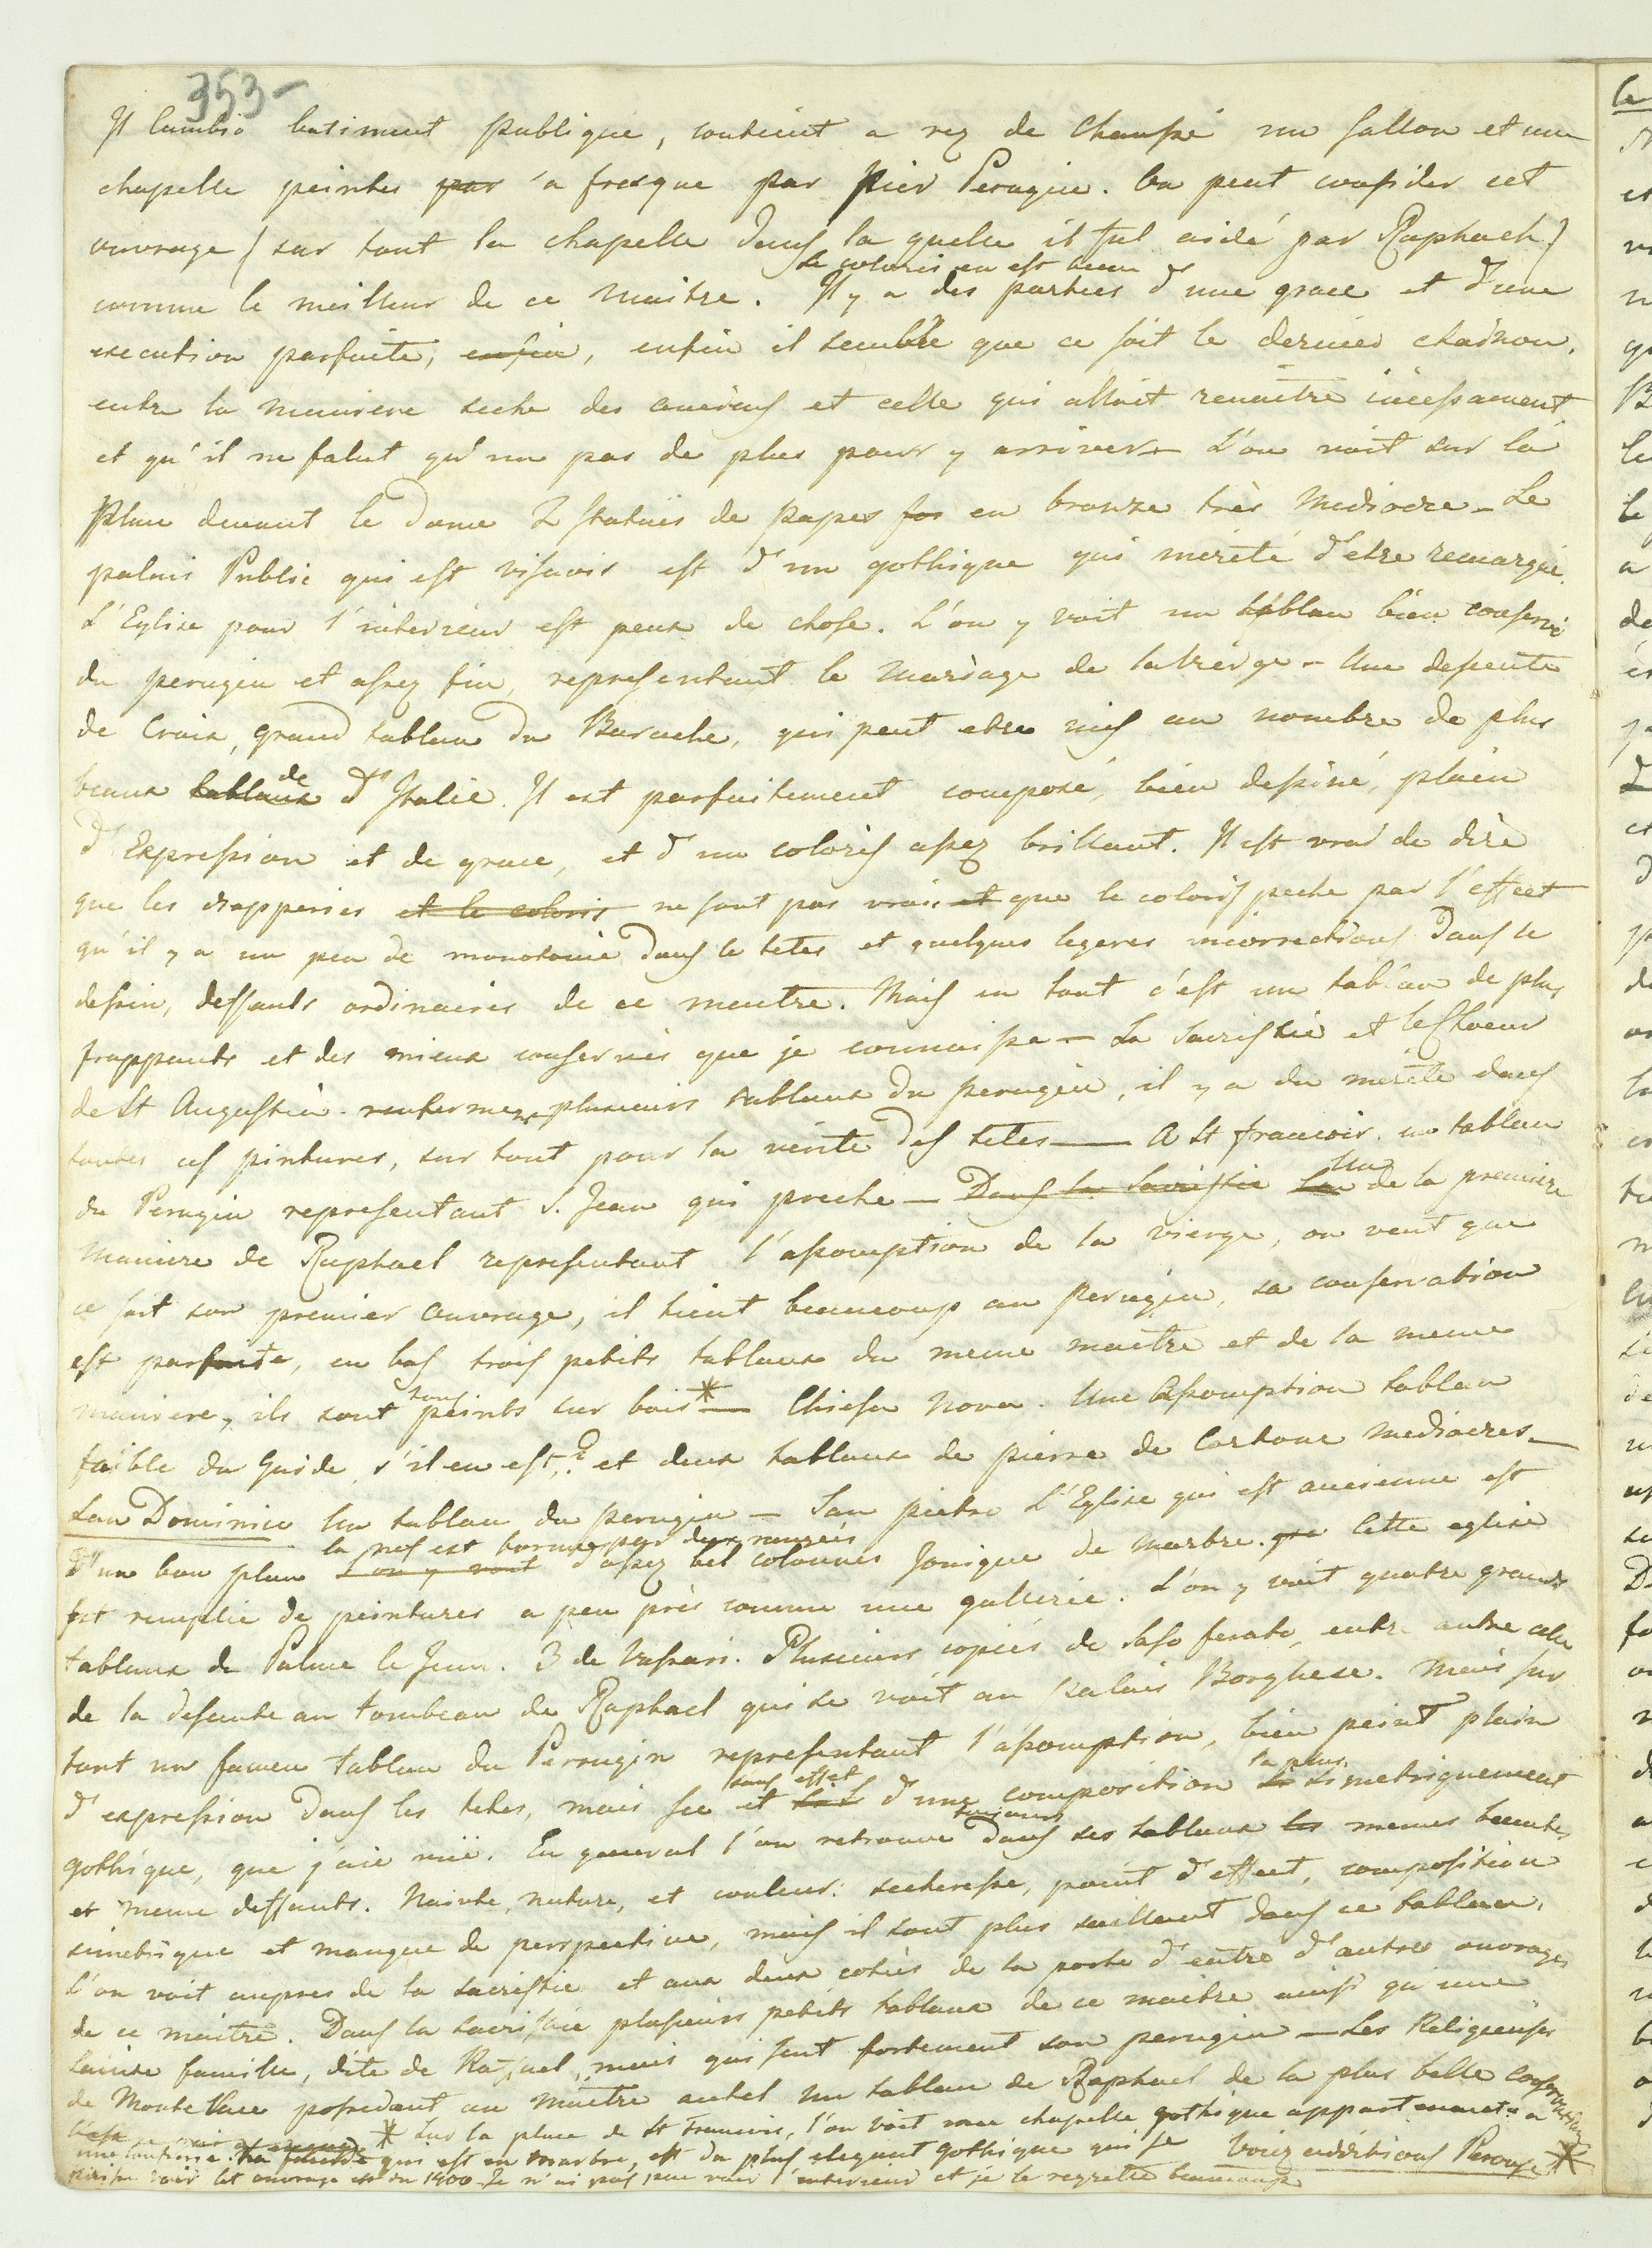 353-
Il Cambio batiment publique, contient a rez de chaussé un sallon et une
chapelle peintes par a fresque par Pier Perugin. On peut considier cet
ouvrage (sur tout la chapelle dans la quelle il fut aidé par Raphaeh)
le coloris en est beau
comme le meilleur de ce maitre. Il y a des parties d'une grace et d'une
execution parfaite, enfin, enfin il semble que ce soit le dernier chainon,
entre la maniere seche des anciens et celle qui alloit renaitre incessament,
et qu'il ne falut qu'un pas de plus pour y arriver – L'on voit sur la
Place devant le Dome 2 statuës de papes en bronze très mediocre – Le
palais Public qui est visavis est d'un gothique qui merite d'etre remarqué.
L'Eglise pour l'interieur est peux de chose. L'on y voit un tablau bien conservé
du perugin et assez fin, representant le mariage de la vierge – Une descente
de Croix, grand tableau du Baroche, qui peut etre mis au nombre de plus
beaux tableaux de d'Italie. Il est parfaitement composé, bien dessiné, plain
d'Expression et de grace, et d'un coloris assez brillant. Il est vrai de dire
que les drapperies et le coloris ne sont pas vrais et que le coloris peche par l'effect
qu'il y a un peu de monotonie dans le tetes et quelques legeres incorrections dans le
dessin, deffauts ordinaires de ce maitre. Mais en tout c'est un tableau de plus
frappants et des mieux conservés que je connaisse – La Sacristie et le Choeur
de St Augustin renferment plusieurs tableaux du perugin, il y a du merite dans
toutes ces pintures, sur tout pour la verité des tetes — A St francois un tableau
du Perugin representant S. Jean qui preche – Dans la Sacristie Un de la premiere
maniere de Raphael representant l'assomption de la vierge, on veut que
ce soit son premier ouvrage, il tient beaucoup au Perugin, sa conservation
est parfaite, en bas trois petits tableaux du meme maitre et de la meme
maniere, ils sont tous peints sur bois * — Chiesa Nova. Une Assomption tableau
faible du Guide, s'il en est,? et deux tableaux de pierre de Cortone mediocres –
San Dominico Un tableau du perugin – San pietro L'Eglise qui est ancienne est
la nef est bornee par deux rangées
d'un bon plan l'on y voit d'assez bel colonnes Jonique de marbre. Cette eglise
est remplie de peintures a peu près comme une gallerie. L'on y voit quatre grands
tableaux de Palme le Jeune. 3 de Vasari. Plusieurs copies de Saso ferato, entre autre celle
de la descente au tombeau de Raphael qui se voit au Palais Borghese. Mais sur
tout un fameu tableau du Perrugin representant l'assomption, bien peint plain
sans effet la plus
d'expression dans les tetes, mais sec et d'une composition simetriquement
toujours
gothique, que j'aie vüe. En general l'on retrouve dans ses tableaux les memes beautés
et meme deffauts. Naiveté, nature, et couleur: secheresse, point d'effect, composition
simetrique et manque de perspective, mais il sont plus saillant dans ce tableau.
L'on voit aupres de la sacristie et aux deux cotés de la porte d'entre d'autre ouvrages
de ce maitre. Dans la sacristie plusieurs petits tableaux de ce maitre ainsi qu'une
sainte famille, dite de Rafael, mais qui sent fortement son perugin – Les Religieuses
de Monte Luce possedent au maitre autel un tableau de Raphael de la plus belle conservation
* Sur la place de St Francois, l'on voit une chapelle gothique appartenante a
une confrerie. qui est en marbre, est du plus elegant gothique qui se Voiez additions Perouse *
puisse voir cet ouvrage est en 1400. Je n'ai pas pue voir l'interieur et je le regrette beaucoup